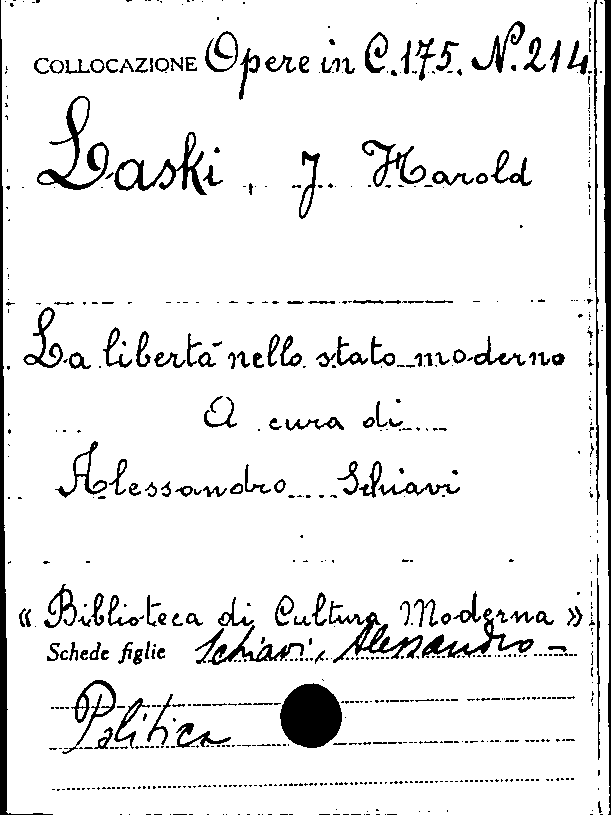 COLLOCAZIONE Opere in C.175. N.214
Laski, J. Harold
La libertà nello stato moderno
A cura di
Alessandro Schiavi
« Biblioteca di Cultura Moderna »
Schede figlie Schiavi, Alessandro -
Politica